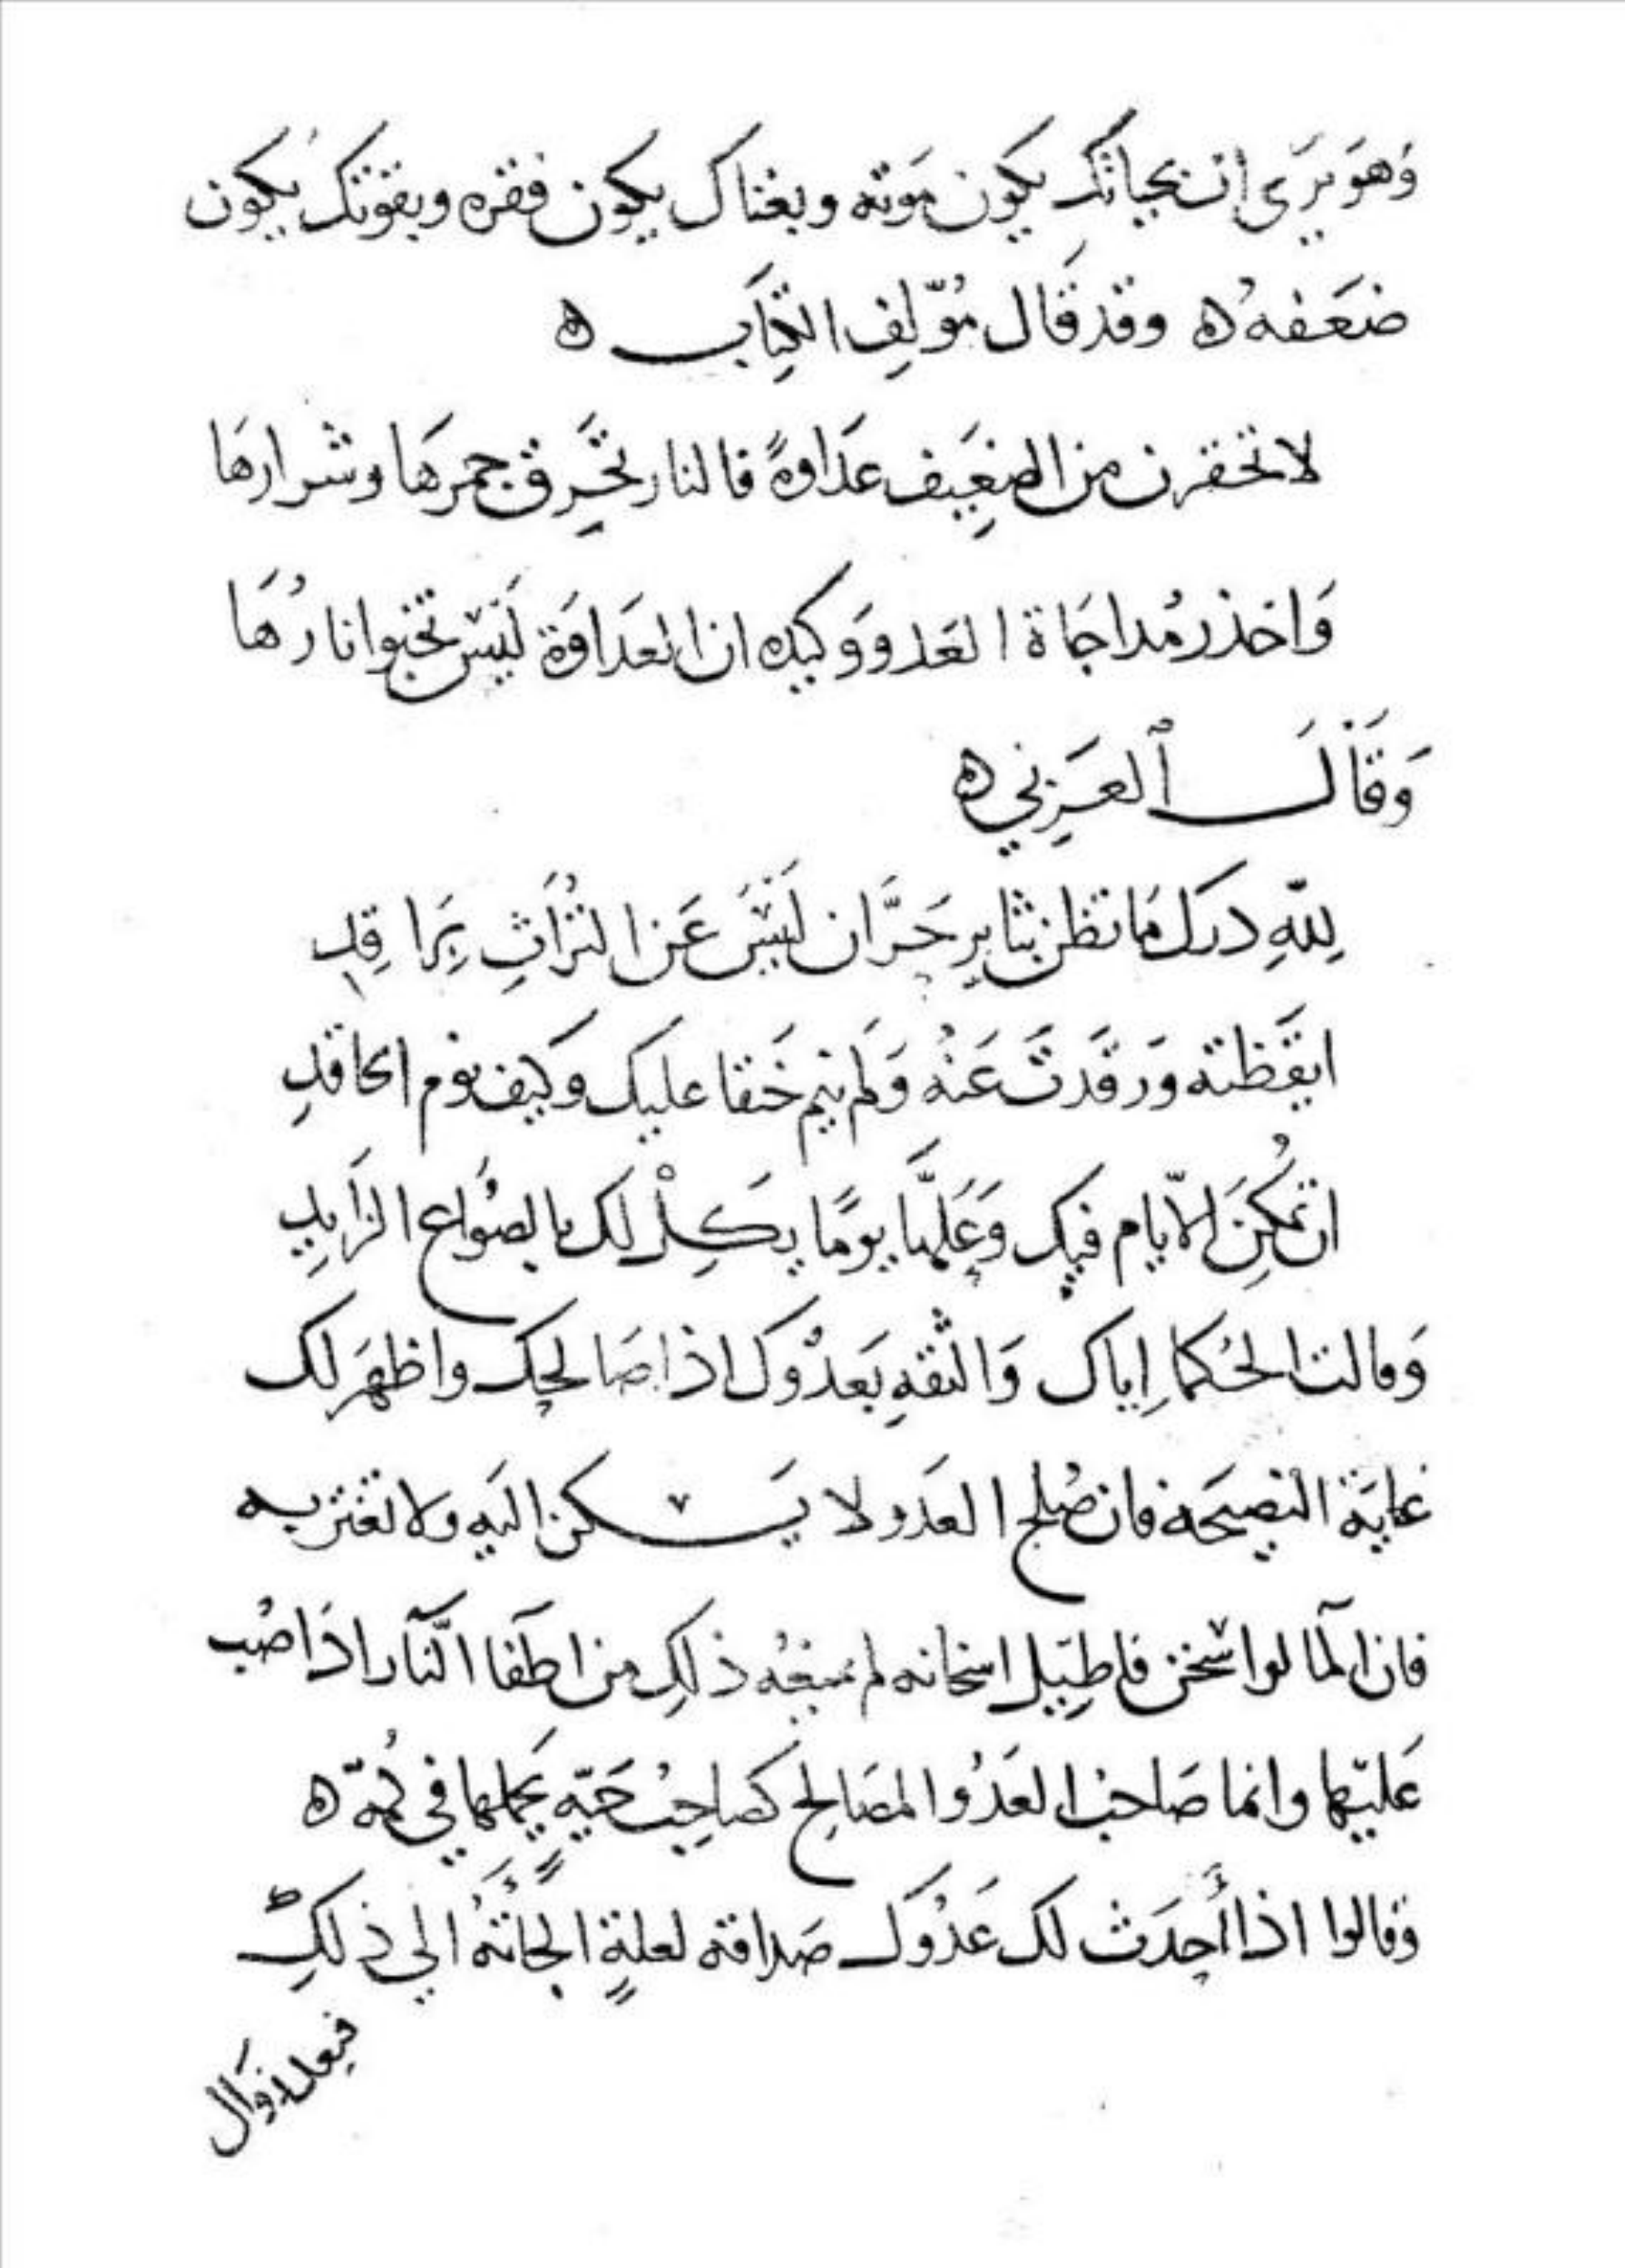 وَهوَ يَرَى ان بحياتك يكون مَوته وبغناك يكون فقره وبقوتك يكون
ضعَفهُ ه وقد قَال مُؤّلِف الكِتَاب ه
لا تحقرن من الضعِيَف عَداوةً فالنار تحَرِق جمرَها وشرارهَا
وَاحذر مُداجَاة العَدو وَكيده ان العَدَاوَة لَيَس تخبوا نارُهَا
وَقَالَ ٱلعَزِيزي ه
لِلّهِ درك مَا تظن بثايرِ حَرَّان لَيَسَ عَن التُرَاثِ بِرَاقِدِ
ايقَظته وَرقَدتَ عَنهُ وَلم ينم حَنقا عليك وَكيف نوم الحاقدِ
ان تمُكِنَ الاّيام فيك وَعَلّهَا يومًا يَكِلْ لك بالصُوَاع الزَايدِ
وَقالت الحُكما إِياك وَالثقهِ بَعدُوك اذا صَالحك واظهَر لك
غايَة النصيحَه فان صُلح العدَو لا يَسكن اليَه ولا تغتر به
فان الما لو اسخن فاطِيَل اسخانه لم يمنعُه ذلِك من اطَفا النَّار اذَا صُب
عَليَها وانما صَاحب العَدُو المصَالح كصَاحِب حَيّهٍ يَحملها في كُمّه ه
وَقالوا اذا أَحدَث لك عَدُوَك صَداقته لعلةٍ الجأتَهُ الي ذلكِ
فبعد زوَال